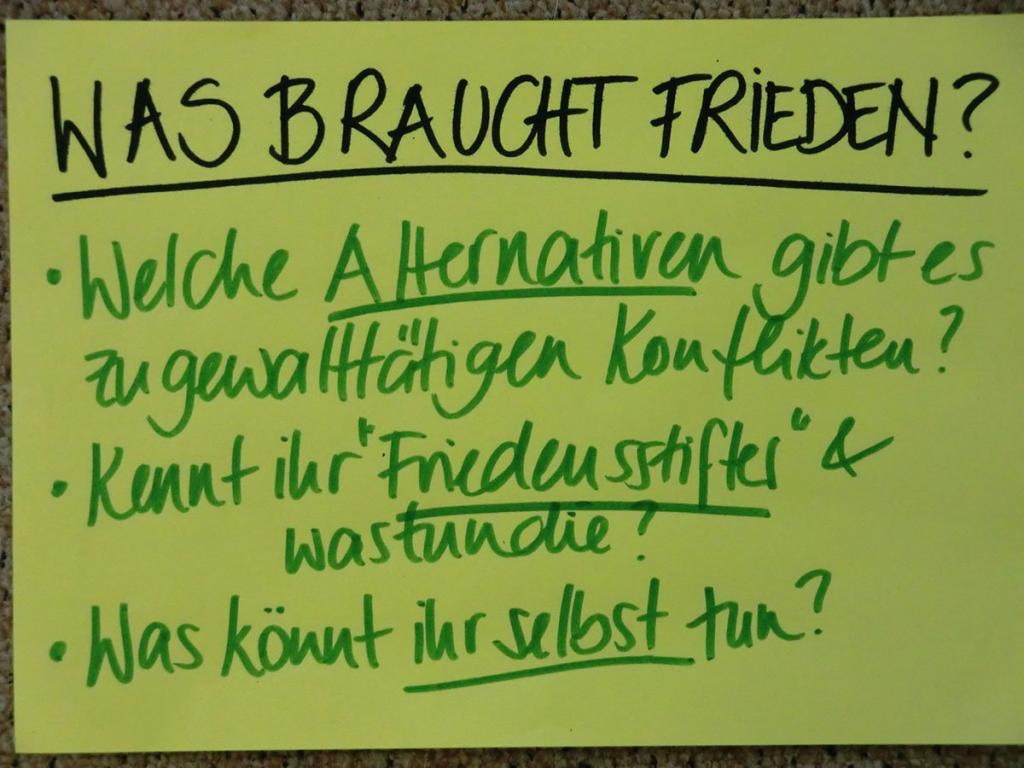 WAS BRAUCHT FRIEDEN?
• Welche Alternativen gibt es
zu gewalttätigen Konflikten?
• Kennt ihr "Friedensstifter" &
was tun die?
• Was könnt ihr selbst tun?